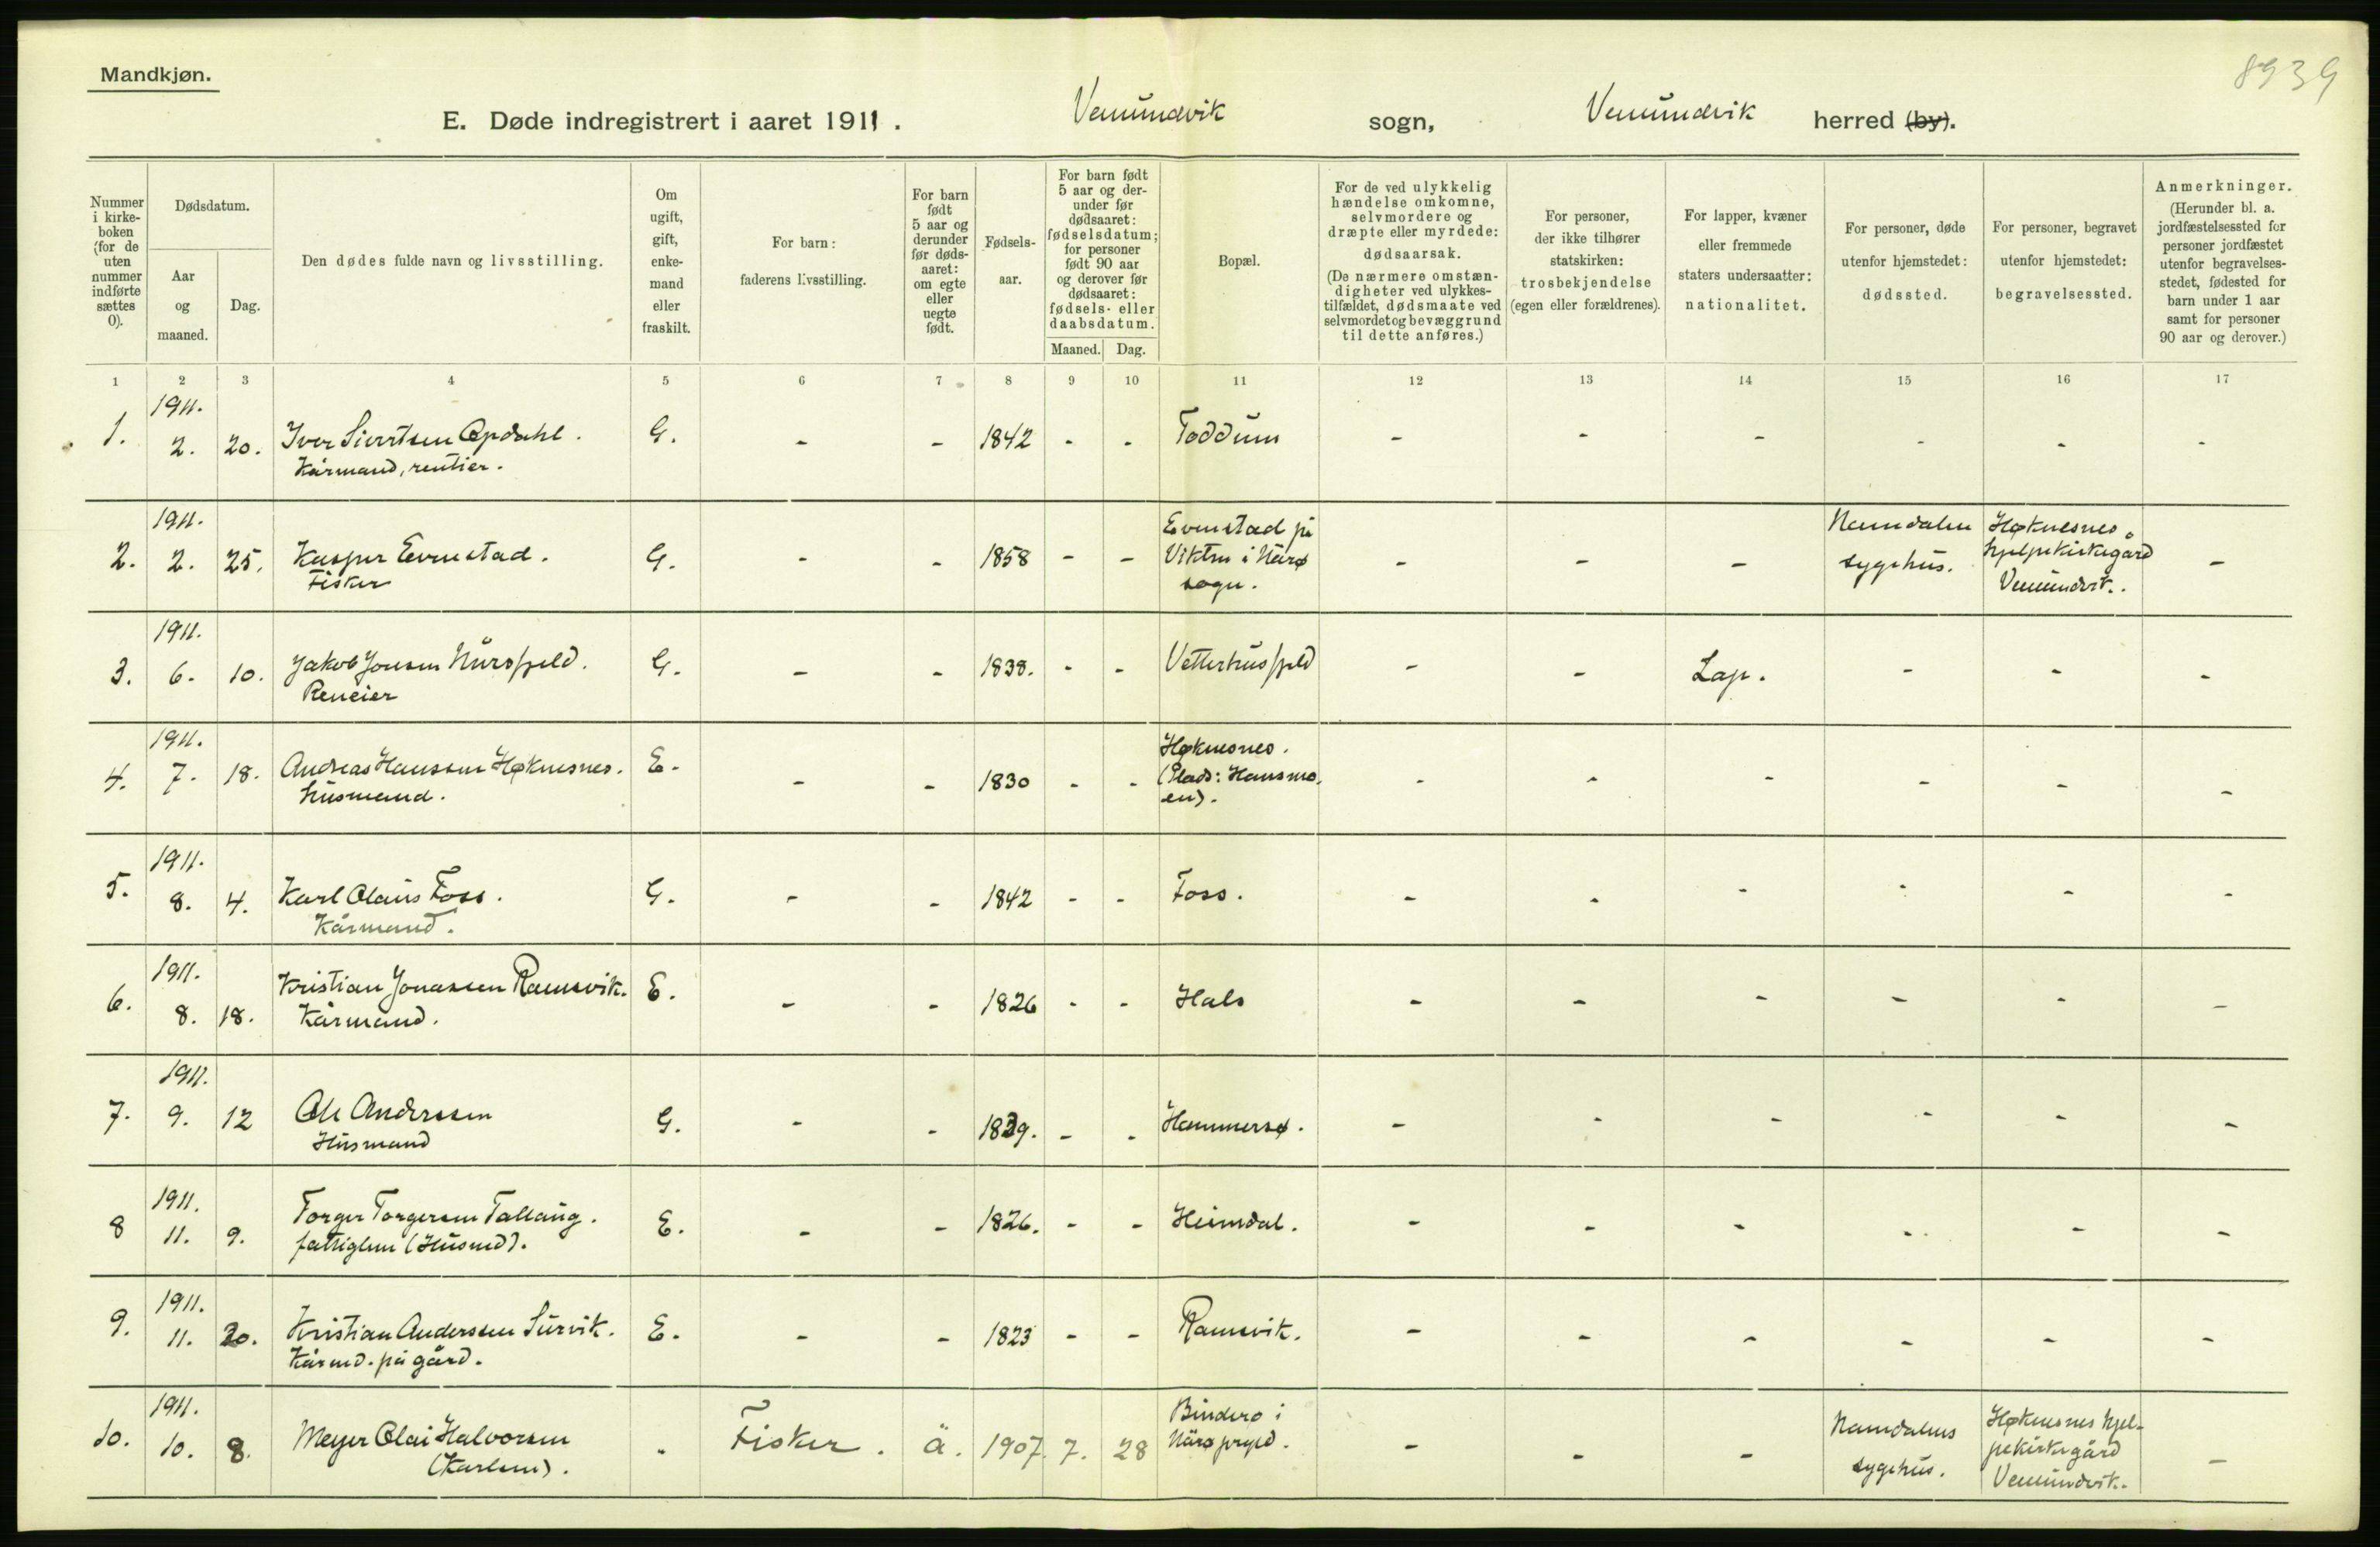 Mandkjøn.
8939
E. Døde indregistrert i aaret 1911. Vemundvik sogn, Vemundvik herred (by).
Nummer i kirke-boken (for de uten nummer indførte sættes 0).
Dødsdatum.
Aar og maaned.
Dag.
Den dødes fulde navn og livsstilling.
Om ugift, gift, enke-mand eller fraskilt.
For barn: faderens livsstilling.
For barn født 5 aar og derunder før døds-aaret: om egte eller uegte født.
Fødsels-aar.
For barn født 5 aar og der-under før dødsaaret: fødselsdatum; for personer født 90 aar og derover før dødsaaret: fødsels- eller daabsdatum.
Maaned. Dag.
Bopæl.
For de ved ulykkelig hændelse omkomne, selvmordere og dræpte eller myrdede: dødsaarsak. (De nærmere omstæn-digheter ved ulykkes-tilfældet, dødsmaate ved selvmordet og bevæggrund til dette anføres.)
For personer, der ikke tilhører statskirken: trosbekjendelse (egen eller forældrenes).
For lapper, kvæner eller fremmede staters undersaatter: nationalitet.
For personer, døde utenfor hjemstedet: dødssted.
For personer, begravet utenfor hjemstedet: begravelsessted.
Anmerkninger. (Herunder bl. a. jordfæstelsessted for personer jordfæstet utenfor begravelses-stedet, fødested for barn under 1 aar samt for personer 90 aar og derover.)
1 2 3 4 5 6 7 8 9 10 11 12 13 14 15 16 17
1911.
1. 2. 20. Iver Sivertsen Opdahl. G. - - 1842 - - Foddum - - - - - -
Kårmand, rentier.
1911.
2. 2. 25. Kasper Evenstad. G. - - 1858 - - Evenstad på Vikten i Nærø sogn. - - - Namdalen sygehus. Høknesnes hjelpekirkegård Vemundvik. -
Fisker
1911.
3. 6. 10. Jakob Jonsen Nursfjeld. G. - - 1838. - - Vetterhusfjeld - - Lap. - - -
Reneier
1911.
4. 7. 18. Andreas Hanssen Høknesnes. E. - - 1830 - - Høknesnes. (Plads: Hansmoen). - - - - - -
husmand.
1911.
5. 8. 4. Karl Olaus Foss. G. - - 1842 - - Foss. - - - - - -
Kårmand.
1911.
6. 8. 18. Kristian Jonassen Ramsvik. E. - - 1826 - - Hals - - - - - -
Kårmand.
1911.
7. 9. 12 Ole Anderssen G. - - 1839. - - Hammersø. - - - - - -
Husmand
1911.
8 11. 9. Torger Torgersen Tallaug. E. - - 1826. - - Heimdal. - - - - - -
fattiglem (Husmd).
1911.
9. 11. 20. Kristian Anderssen Survik. E. - - 1823 - - Ramsvik. - - - - - -
Kårmd. på gård.
1911.
10. 10. 8. Meyer Olai Halvorsen - Fisker. ä. 1907. 7. 28 Bindero i Nærø prgjld. - - - Namdalens sygehus. Høknesnes hjelpekirkegård Vemundvik. -
(Karlsen).